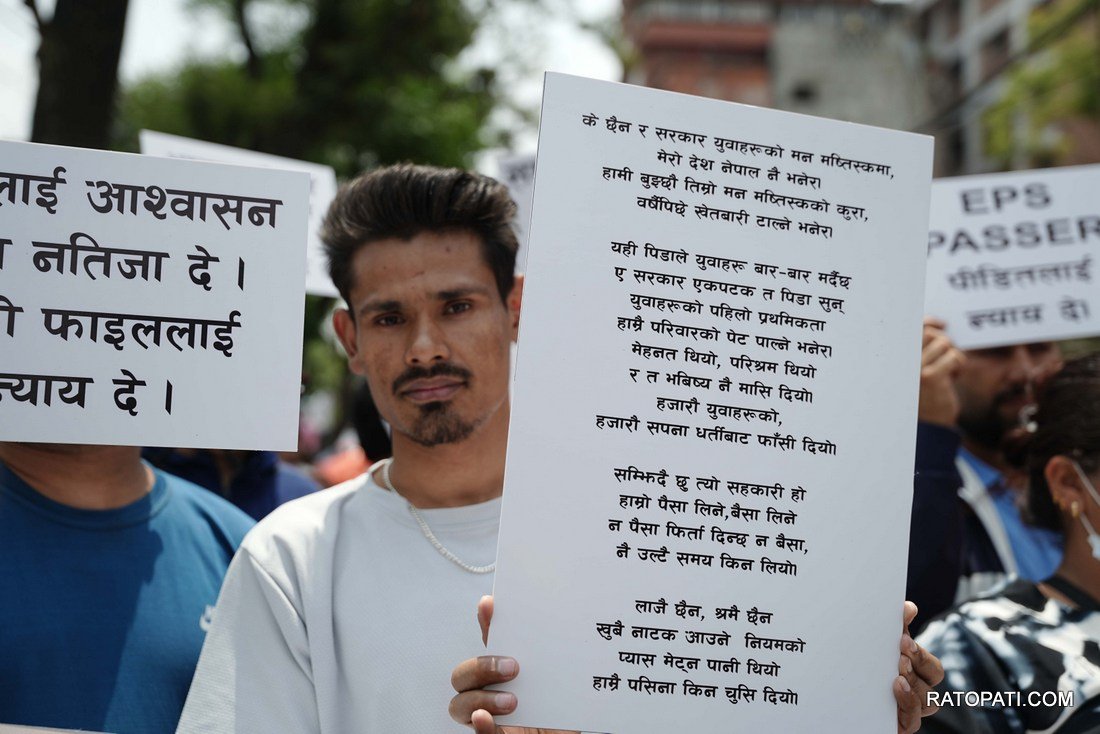 लाई आश्वासन
नतिजा दे ।
फाइललाई
न्याय दे ।
के छैन र सरकार युवाहरूको मन मष्तिस्कमा,
मेरो देश नेपाल नै भनेर।
हामी बुझ्छौ तिम्रो मन मष्तिस्कको कुरा,
वर्षैपिछे खेतबारी टाल्ने भनेर।
यही पिडाले युवाहरू बार-बार मर्दैछ
ए सरकार एकपटक त पिडा सुन्
युवाहरूको पहिलो प्रथमिकता
हाम्रै परिवारको पेट पाल्ने भनेर।
मेहनत थियो, परिश्रम थियो
र त भबिष्य नै मासि दियो।
हजारौ युवाहरूको,
हजारौ सपना धर्तीबाट फाँसी दियो।
सम्झिदै छु त्यो सहकारी हो
हाम्रो पैसा लिने,बैसा लिने
न पैसा फिर्ता दिन्छ न बैसा,
नै उल्टै समय किन लियो।
लाजै छैन, श्रमै छैन
खुबै नाटक आउने नियमको
प्यास मेट्न पानी थियो
हाम्रै पसिना किन चुसि दियो।
EPS
PASSER
पीडितलाई
न्याय दे।
RATOPATI.COM